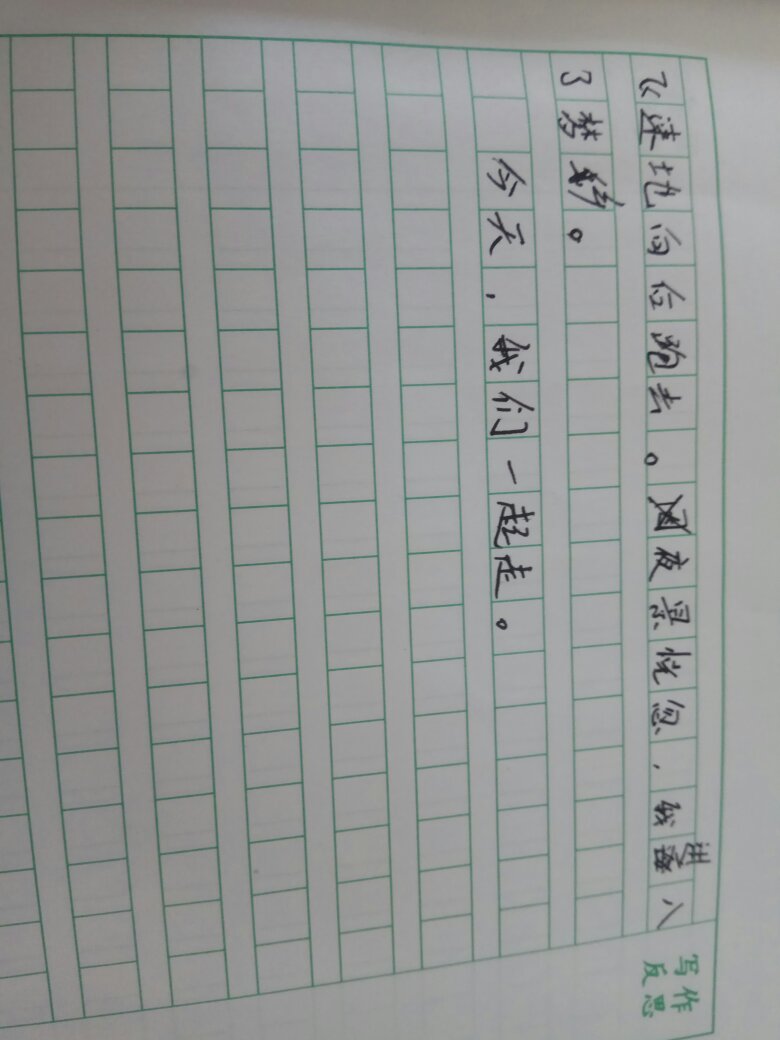 飞速地向后跑去。夜景恍忽,我进入
了梦乡。
今天,我们一起走。
写作
反思